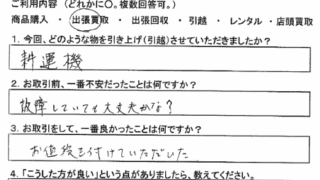 ご利用内容（どれかに○。複数回答可。）
商品購入 ・ 出張買取 ・ 出張回収 ・ 引越 ・ レンタル ・ 店頭買取
1. 今回、どのような物を引き上げ(引越)させていただきましたか？
耕運機
2. お取引前、一番不安だったことは何ですか？
故障していても大丈夫かな？
3. お取引をして、一番良かったことは何ですか？
お値段を付けていただいた
4. 「こうした方が良い」という点がありましたら、教えてください。